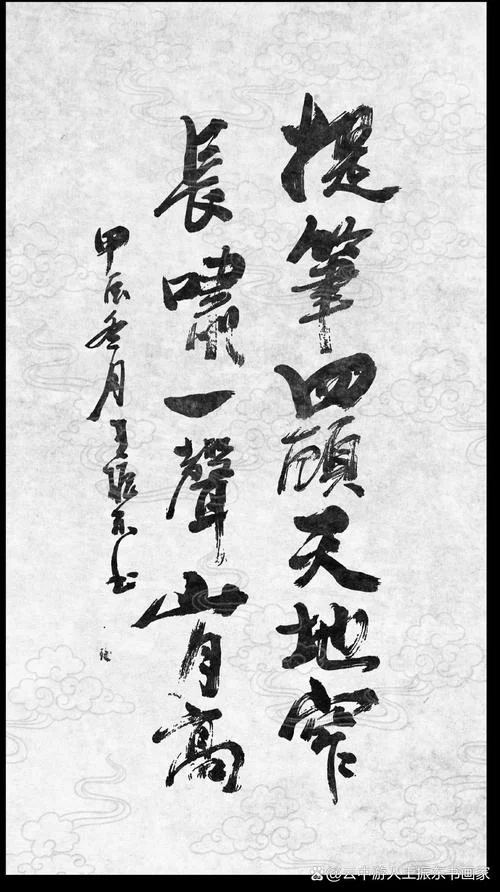 提筆四顧天地窄
長嘯一聲山月高
甲辰冬月王振东书
云中游人王振东书画家